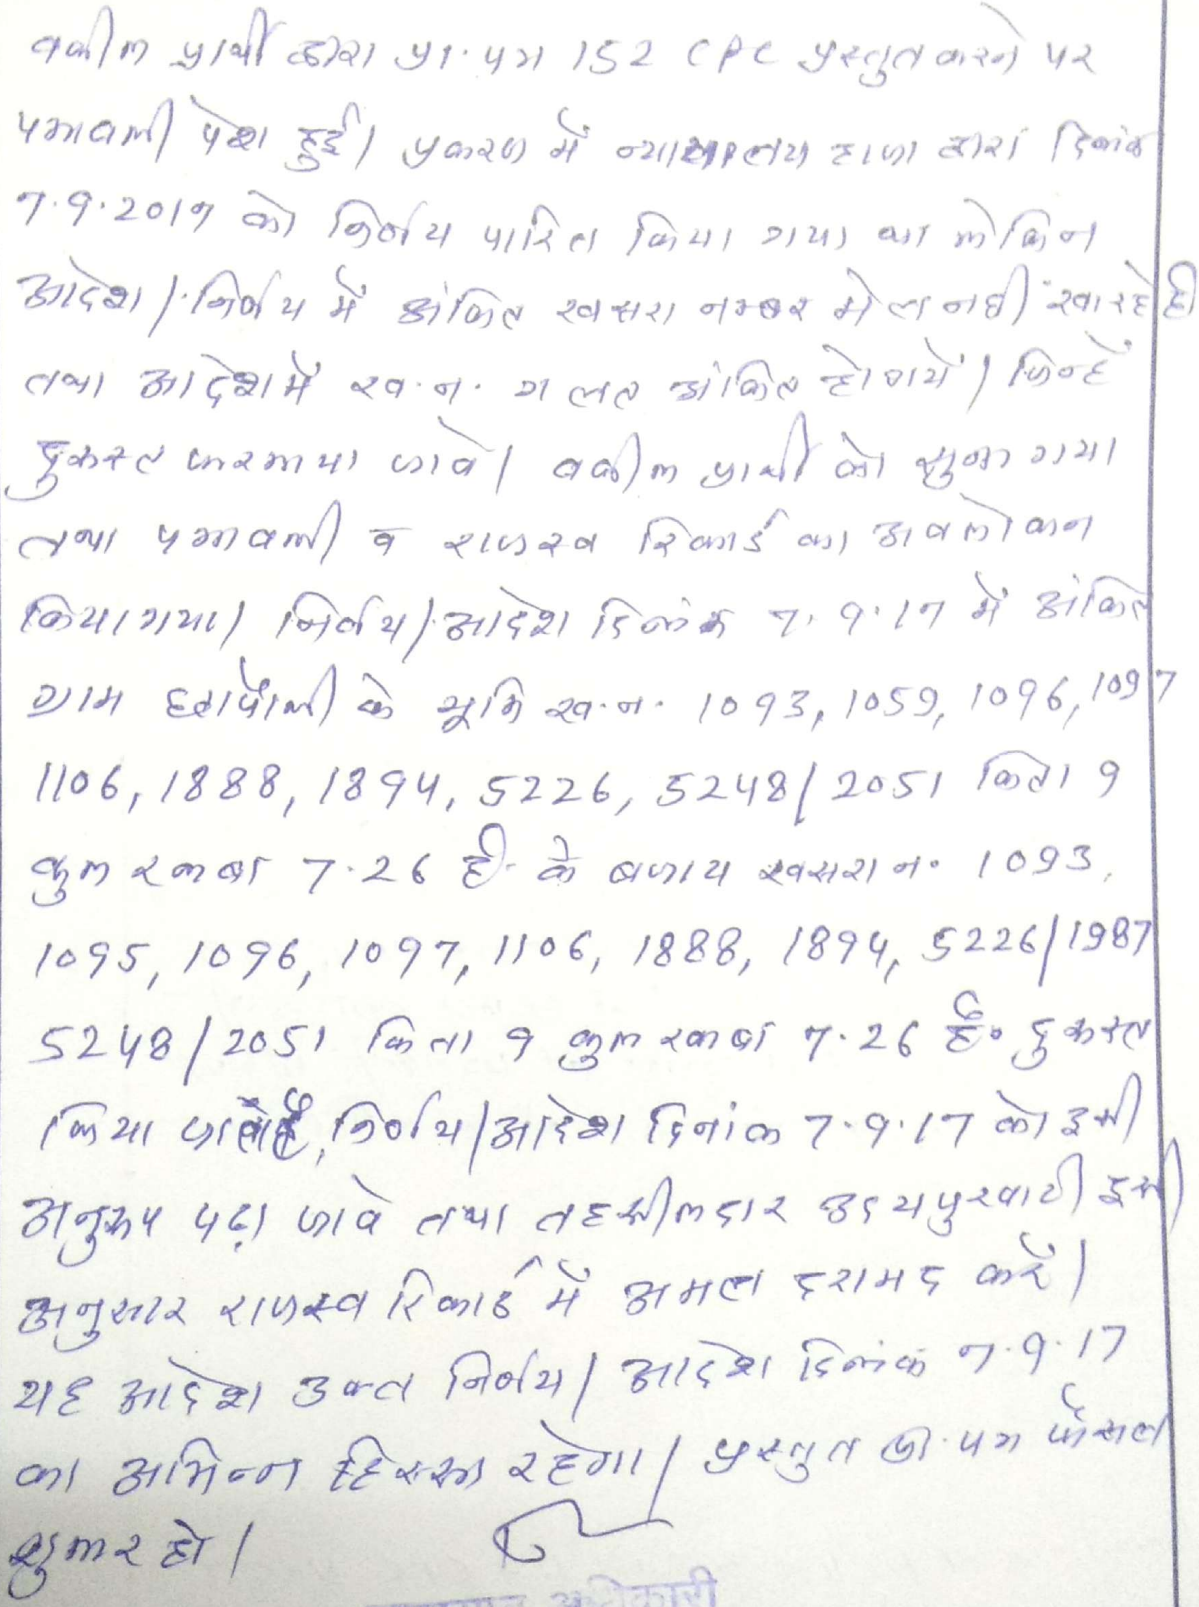 वकील प्रार्थी द्वारा प्रा.पत्र 152 CPC प्रस्तुत करने पर
पत्रावली पेश हुई। प्रकरण में न्यायालय हाजा द्वारा दिनांक
7.9.2017 को निर्णय पारित किया गया था लेकिन
आदेश/निर्णय में अंकित खसरा नम्बर मेल नहीं खा रहे है
तथा आदेश में ख.न. गलत अंकित हो गये। जिन्हें
दुरूस्त फरमाया जावे। वकील प्रार्थी को सुना गया
तथा पत्रावली व राजस्व रिकार्ड का अवलोकन
किया गया। निर्णय/आदेश दिनांक 7.9.17 में अंकित
ग्राम के भूमि ख.न. 1093, 1059, 1096, 1097
1106, 1888, 1894, 5226, 5248/2051 किता 9
कुल रकबा 7.26 है. के बजाय खसरा न. 1093,
1095, 1096, 1097, 1106, 1888, 1894, 5226/1987
5248/2051 किता 9 कुल रकबा 7.26 है. दुरूस्त
किया जाता है, निर्णय/आदेश दिनांक 7.9.17 को इसी
अनुरूप पढ़ा जावे तथा तहसीलदार उदयपुरवाटी इसी
अनुसार राजस्व रिकार्ड में अमल दरामद करें।
यह आदेश उक्त निर्णय/आदेश दिनांक 7.9.17
का अभिन्न हिस्सा रहेगा। प्रस्तुत प्रा.पत्र फैसल
शुमार हो।
अधिकारी